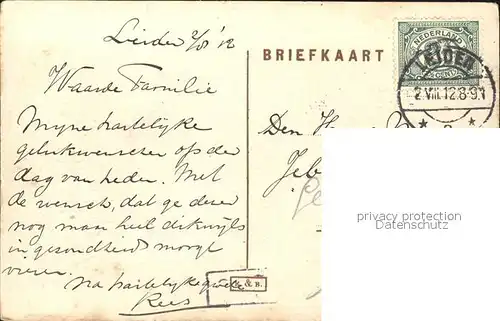 Leiden 2/8 '12
BRIEFKAART
NEDERLAND
LEIDEN
2.VIII.12.8-9.V
Waarde Familie
Myne hartelyke
gelukwenschen op den
dag van heden. Met
de wensch, dat ge dezen
nog maar heel dikwyls
in gezondheid moogt
vieren.
Na hartelyke groete
Kees
Den H
Geb
privacy protection
Datenschutz
& B.